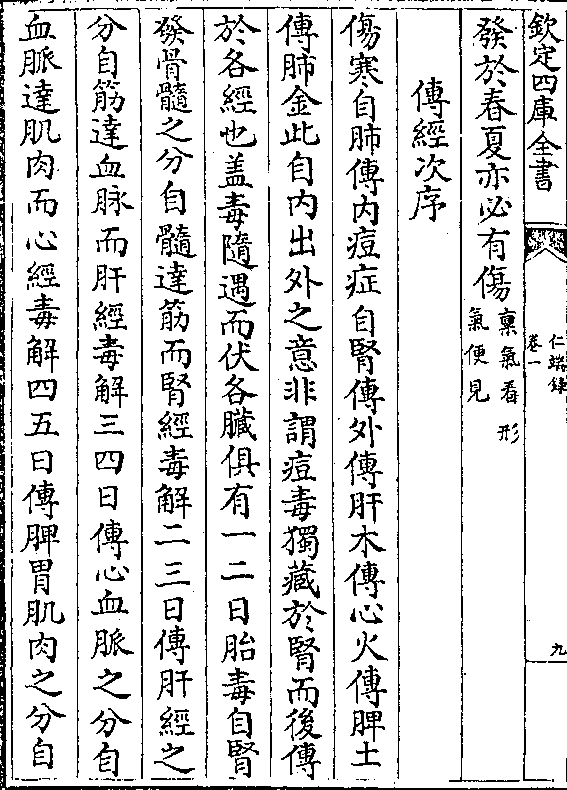 欽定四庫全書
仁端錄
卷一
九
發於春夏亦必有傷稟氣看形
氣便見
傳經次序
傷寒自肺傳内痘症自腎傳外傳肝木傳心火傳脾土
傳肺金此自内出外之意非謂痘毒獨藏於腎而後傳
於各經也盖毒隨遇而伏各臟俱有一二日胎毒自腎
發骨髓之分自髓達筋而腎經毒解二三日傳肝經之
分自筋達血脉而肝經毒解三四日傳心血脈之分自
血脈達肌肉而心經毒解四五日傳脾胃肌肉之分自